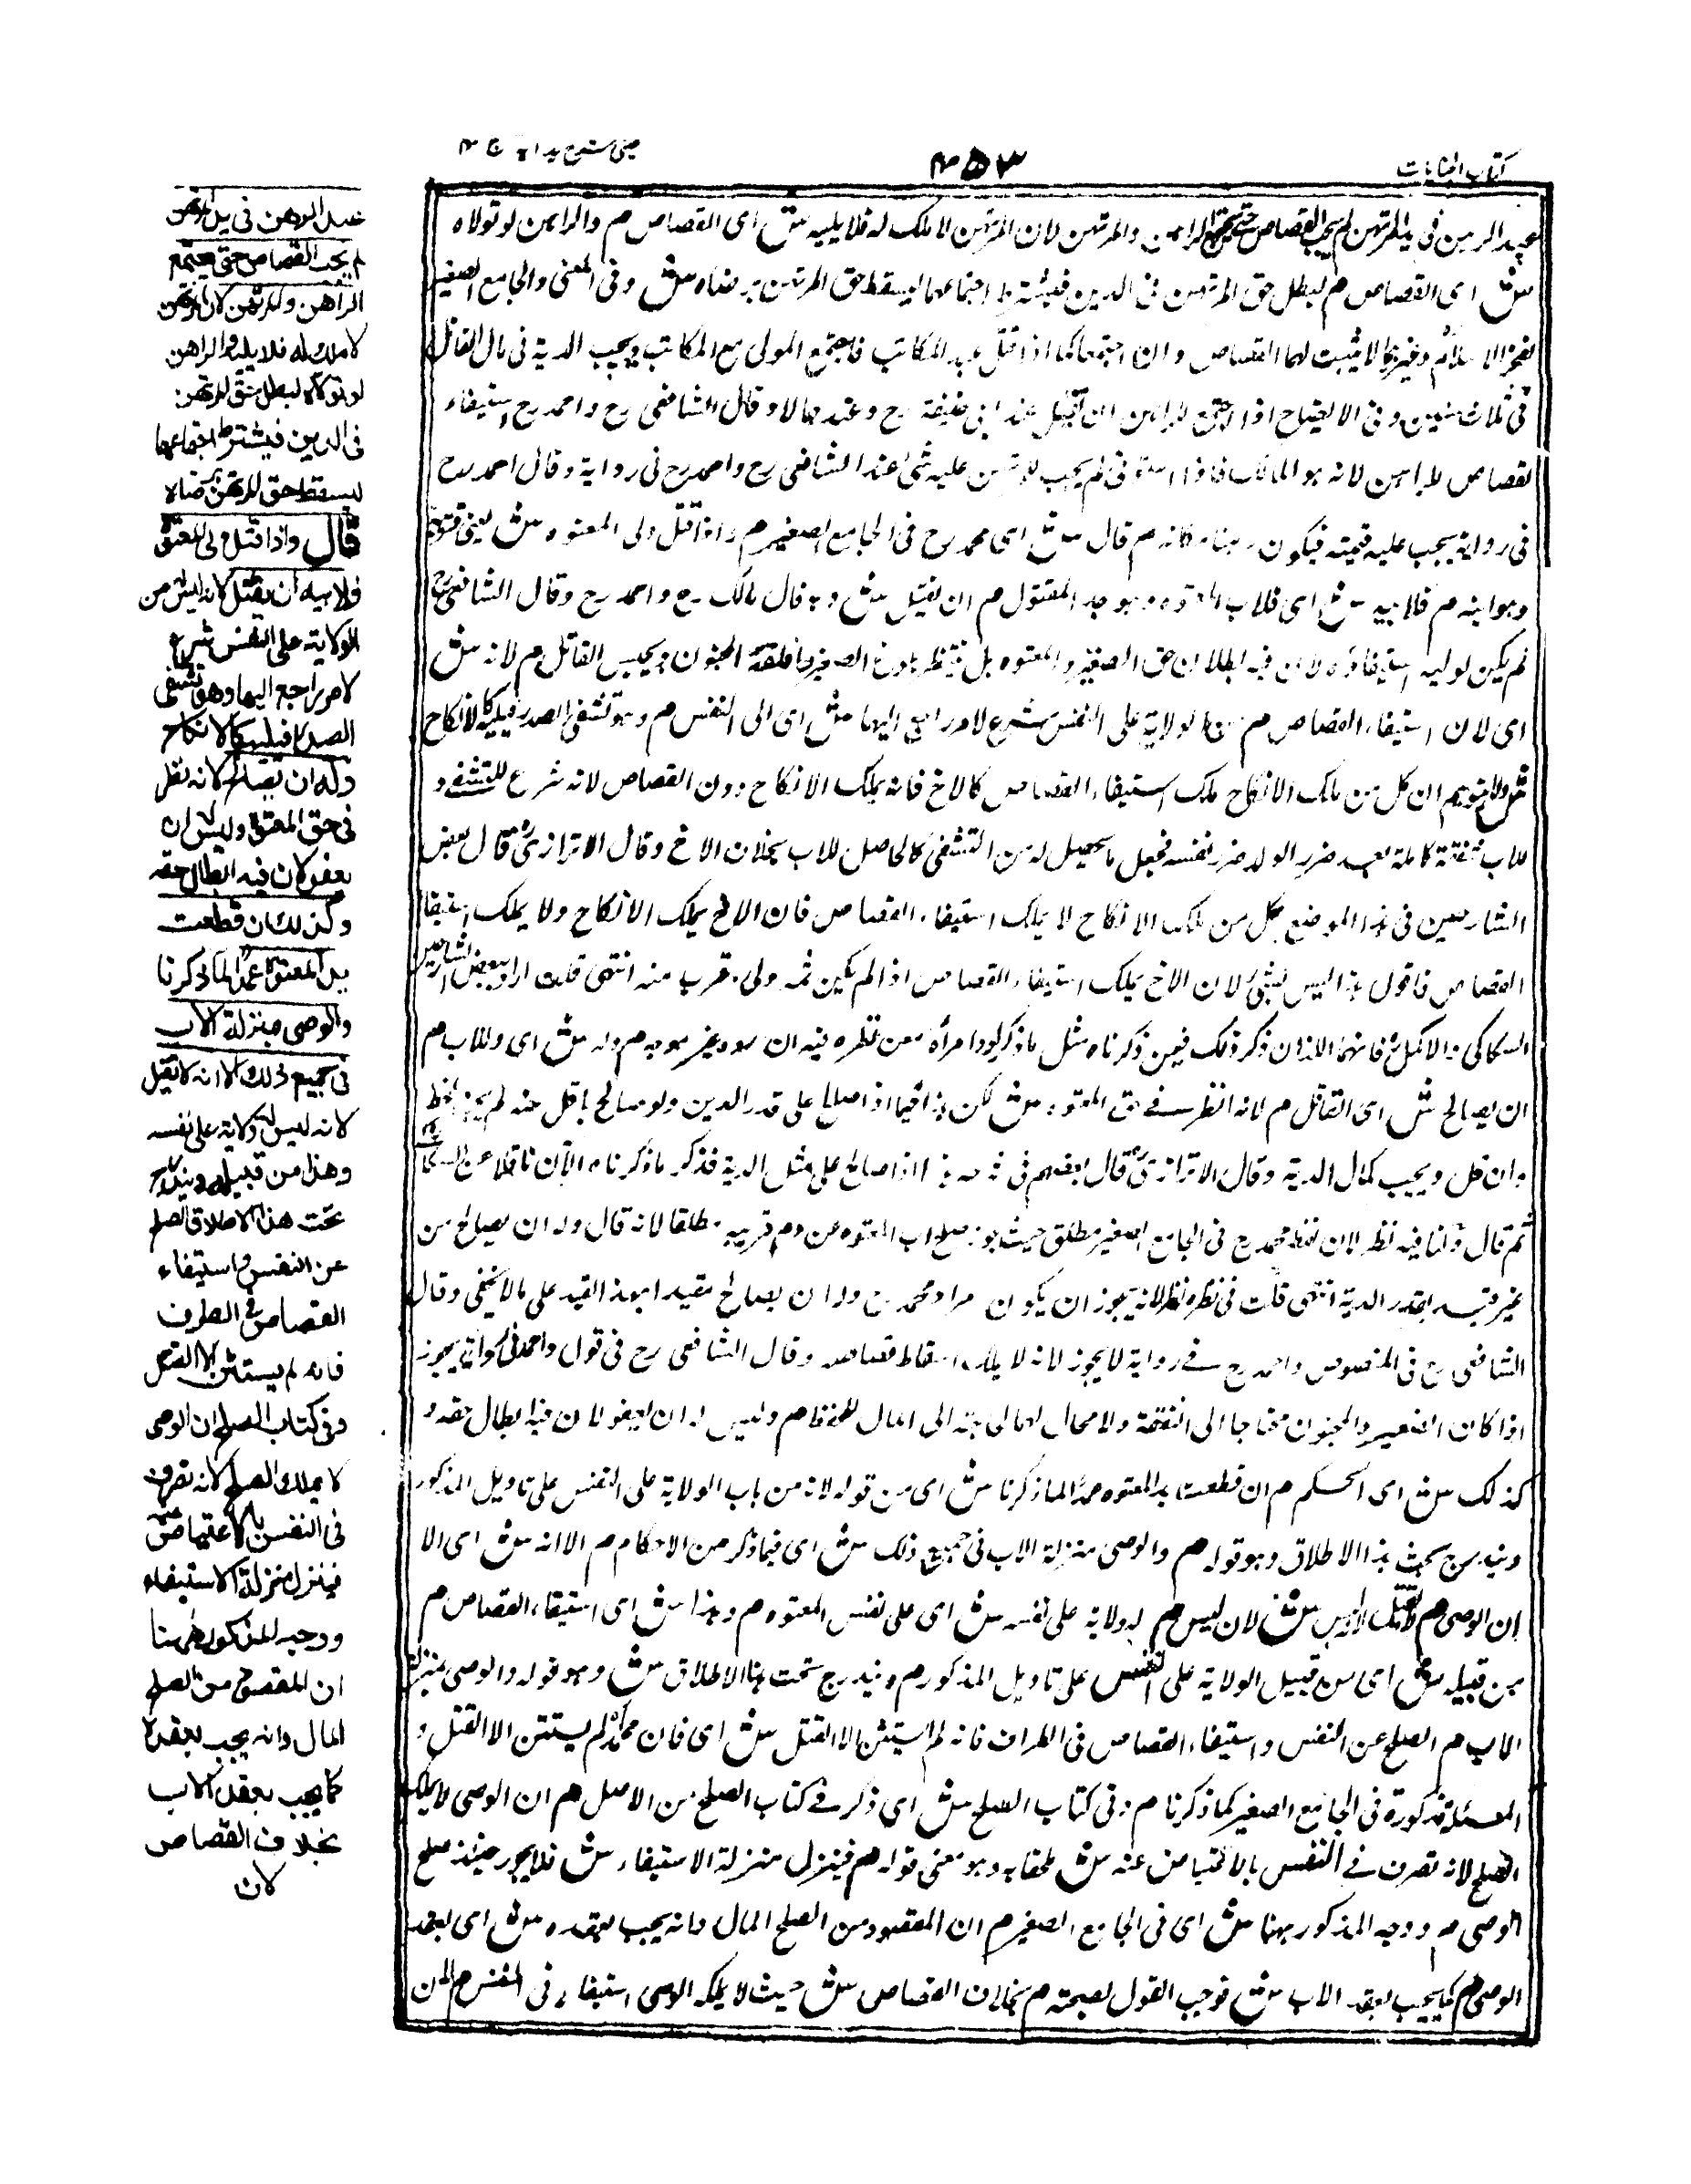 كتاب الجنايات
٤٥٣
عينى شرح هداية ج ٤
عبد الرهن فى يد المرتهن لم يجب القصاص حتى يجتمع الراهن والمرتهن لان المرتهن لا ملك له فلا يليه ش اى القصاص م والراهن لو تولاه
ش اى القصاص م لبطل حق المرتهن فى الدين فيشترط اجتماعهما ليسقط حق المرتهن برضاه ش وفى المغنى والجامع الصغير
لفخر الاسلام وغيره لا يثبت لهما القصاص وان اجتمعا كما اذا قتل عبد المكاتب فاجتمع المولى مع المكاتب ويجب الدية فى مال القاتل
فى ثلاث سنين وفى الايضاح اذا اجتمع للراهن ان يقتل عند ابى حنيفة رح وعندهما لا وقال الشافعى رح واحمد رح استيفاء
القصاص للراهن لانه هو المالك فاذا استوفى لم يجب للمرتهن عليه شئ عند الشافعى رح واحمد رح فى رواية وقال احمد رح
فى رواية يجب عليه قيمته فيكون رهنا مكانه م قال ش اى محمد رح فى الجامع الصغير م واذا قتل ولى المعتوه ش يعنى
وهو ابنه م فلابيه ش اى فلاب المعتوه وهو جد المقتول م ان يقتل ش وبه قال مالك رح واحمد رح وقال الشافعى رح
لم يكن لوليه استيفاؤه لان فيه ابطالا لحق الصغير والمعتوه بل ينتظر بلوغ الصغير وافاقة المجنون ويحبس القاتل م لانه ش
اى لان استيفاء القصاص م من الولاية على النفس شرع لامر راجع اليها ش اى الى النفس م وهو تشفى الصدر فيليه كالانكاح
ش ولا يتوهم ان كل من ملك الانكاح ملك استيفاء القصاص كالاخ فانه يملك الانكاح دون القصاص لانه شرع للتشفى و
للاب شفقة كاملة بعد ضرر الولد ضرر نفسه فجعل ما يحصل له من التشفى كالحاصل للاب بخلاف الاخ وقال الاترازى قال بعض
الشارحين فى هذا الموضع كل من ملك الانكاح لا يملك استيفاء القصاص فان الاخ يملك الانكاح ولا يملك استيفاء
القصاص فاقول هذا ليس بشئ لان الاخ يملك استيفاء القصاص اذا لم يكن ثمه ولى اقرب منه انتهى قلت اراد ببعض الشارحين
السكاكى والاكمل فانهما اللذان ذكر ذلك فيمن ذكرناه مثل ما ذكر امعن نظره فيه ان غير موجه م وله ش اى وللاب م
ان يصالح ش اى القاتل م لانه انظر فى حق المعتوه ش لكن هذا فيما اذا صالح على قدر الدين ولو صالح باقل منه لم يجز الحط
وان قل ويجب كمال الدية وقال الاترازى قال بعضهم فى شرحه هذا اذا صالح على مثل الدية فذكر ما ذكرناه الآن ناقلا عن
ثم قال ولنا فيه نظر لان لفظ محمد رح فى الجامع الصغير مطلق حيث جوز صلح اب المعتوه عن دم قريبه مطلقا لانه قال وله ان يصالح من
غير قيد بقدر الدية انتهى قلت فى نظره نظر لانه يجوز ان يكون مراد محمد رح وله ان يصالح مقيدا بهذا القيد على ما لا يخفى وقال
الشافعى رح فى المنصوص واحمد رح فى رواية لا يجوز لانه لا يملك اسقاط قصاصه وقال الشافعى رح فى قول واحمد فى رواية يجوز
اذا كان الصغير والمجنون محتاجا الى النفقة ولا مال لهما الى المال م وليس له ان يعفو لان فيه ابطال حقه و
كذلك ش اى الحكم م ان قطعت يد المعتوه عمدا لما ذكرنا ش اى من قوله لانه من باب الولاية على النفس على تاويل المذكور
ويندرج تحت هذا الاطلاق وهو قوله م والوصى بمنزلة الاب فى جميع ذلك ش اى فيما ذكر من الاحكام م الا انه ش اى الا
ان الوصى م لا يقتل لانه ليس ش لان ليس م له ولاية على نفسه ش اى على نفس المعتوه م وهذا ش اى استيفاء القصاص م
من قبيله ش اى من قبيل الولاية على النفس على تاويل المذكور م ويندرج تحت هذا الاطلاق ش وهو قوله والوصى بمنزلة
الاب م الصلح عن النفس واستيفاء القصاص فى الطرف فانه لم يستثن الا القتل ش اى فان محمدا لم يستثن الا القتل و
المسئلة مذكورة فى الجامع الصغير كما ذكرنا م وفى كتاب الصلح ش اى ذكر فى كتاب الصلح من الاصل م ان الوصى لا يملك
الصلح لانه تصرف فى النفس بالاعتياض عنه ش ملحقا به وهو معنى قوله م فينزل منزلة الاستيفاء ش فلا يجوز حينئذ صلح
الوصى م ووجه المذكور ههنا ش اى فى الجامع الصغير م ان المقصود من الصلح المال وانه يجب بعقده ش اى بعقد
الوصى م كما يجب بعقد الاب ش فوجب القول بصحته م بخلاف القصاص ش حيث لا يملك الوصى استيفاء فى النفس م لان
عبد الرهن فى يد المرتهن
لم يجب القصاص حتى يجتمع
الراهن والمرتهن لان المرتهن
لا ملك له فلا يليه والراهن
لو تولاه لبطل حق المرتهن
فى الدين فيشترط اجتماعهما
ليسقط حق المرتهن برضاه
قال واذا قتل ولى المعتوه
فلابيه ان يقتل لانه من
الولاية على النفس شرع
لامر راجع اليها وهو تشفى
الصدر فيليه كالانكاح
وله ان يصالح لانه نظر
فى حق المعتوه وليس له ان
يعفو لان فيه ابطال حقه
وكذلك ان قطعت
يد المعتوه عمدا لما ذكرنا
والوصى بمنزلة الاب
فى جميع ذلك الا انه لا يقتل
لانه ليس له ولاية على نفسه
وهذا من قبيله ويندرج
تحت هذا الاطلاق الصلح
عن النفس واستيفاء
القصاص فى الطرف
فانه لم يستثن الا القتل
وفى كتاب الصلح ان الوصى
لا يملك الصلح لانه تصرف
فى النفس بالاعتياض عنه
فينزل منزلة الاستيفاء
ووجه المذكور ههنا
ان المقصود من الصلح
المال وانه يجب بعقده
كما يجب بعقد الاب
بخلاف القصاص
لان